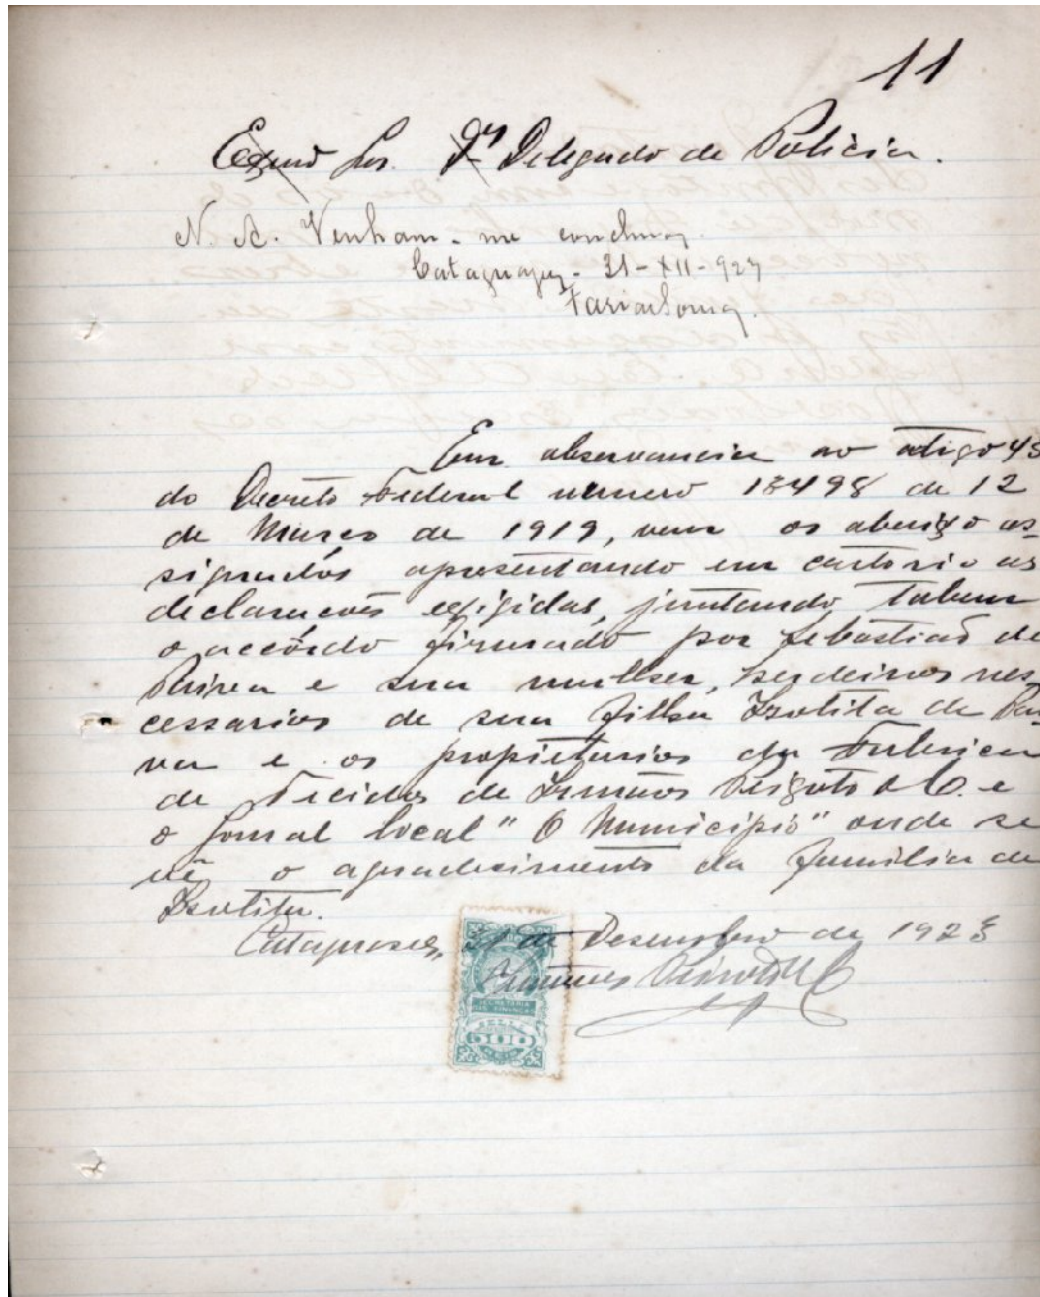 11
Exmo Snr. Dr Delegado de Policia.
N. A. Venham-me conclusos.
Cataguazes - 31-XII-923
Faria Souza.
Em observancia ao artigo 43
do Decreto Federal numero 13498 de 12
de Março de 1919, vem os abaixo as-
signados apresentando em cartorio as
declarações exigidas, juntando tabem
o accôrdo firmado por Sebastião de
Paiva e sua mulher, herdeiros nes-
cessarios de sua filha Isolita de Pai-
va e os propietarios da Fabrica
de Tecidos de Irmãos Peixoto & C. e
o Jornal local "O Municipio" onde se
vê o agradecimento da familia de
Isolita.
Cataguases, 31 de Desembro de 1923
Irmãos Peixoto & C
SECRETARIA
DAS FINANÇAS
500